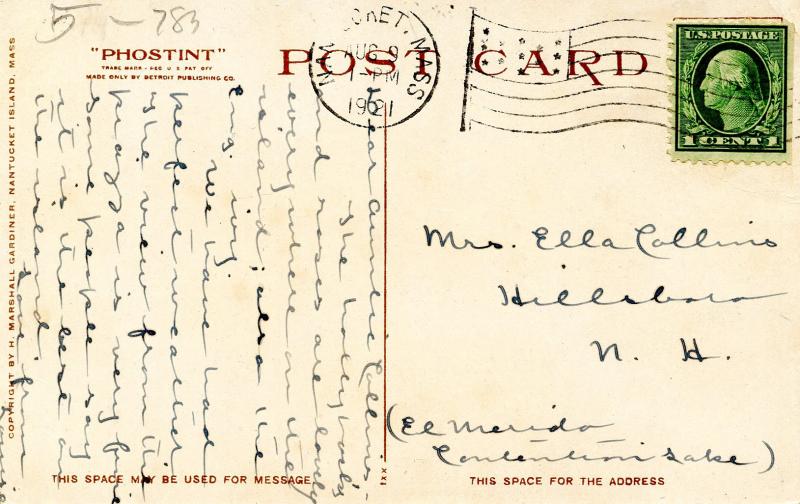 5 - 783
"PHOSTINT"
TRADE MARK - REG U.S. PAT OFF
MADE ONLY BY DETROIT PUBLISHING CO.
POST CARD
MASS
AUG 9
-PM
1921
U.S. POSTAGE
1 CENT 1
COPYRIGHT BY H. MARSHALL GARDINER, NANTUCKET ISLAND, MASS
Dear Auntie Collins -
The hollyhocks
and roses are lovely
everywhere on the
island, also the
Eng. ivy.
We have had
perfect weather
The view from the
piazza is very fine
Some people say
it is the best on
the island.
Love from
Mrs. Ella Collins
Hillsboro
N. H.
(El Merido
Contention Lake)
THIS SPACE MAY BE USED FOR MESSAGE
THIS SPACE FOR THE ADDRESS